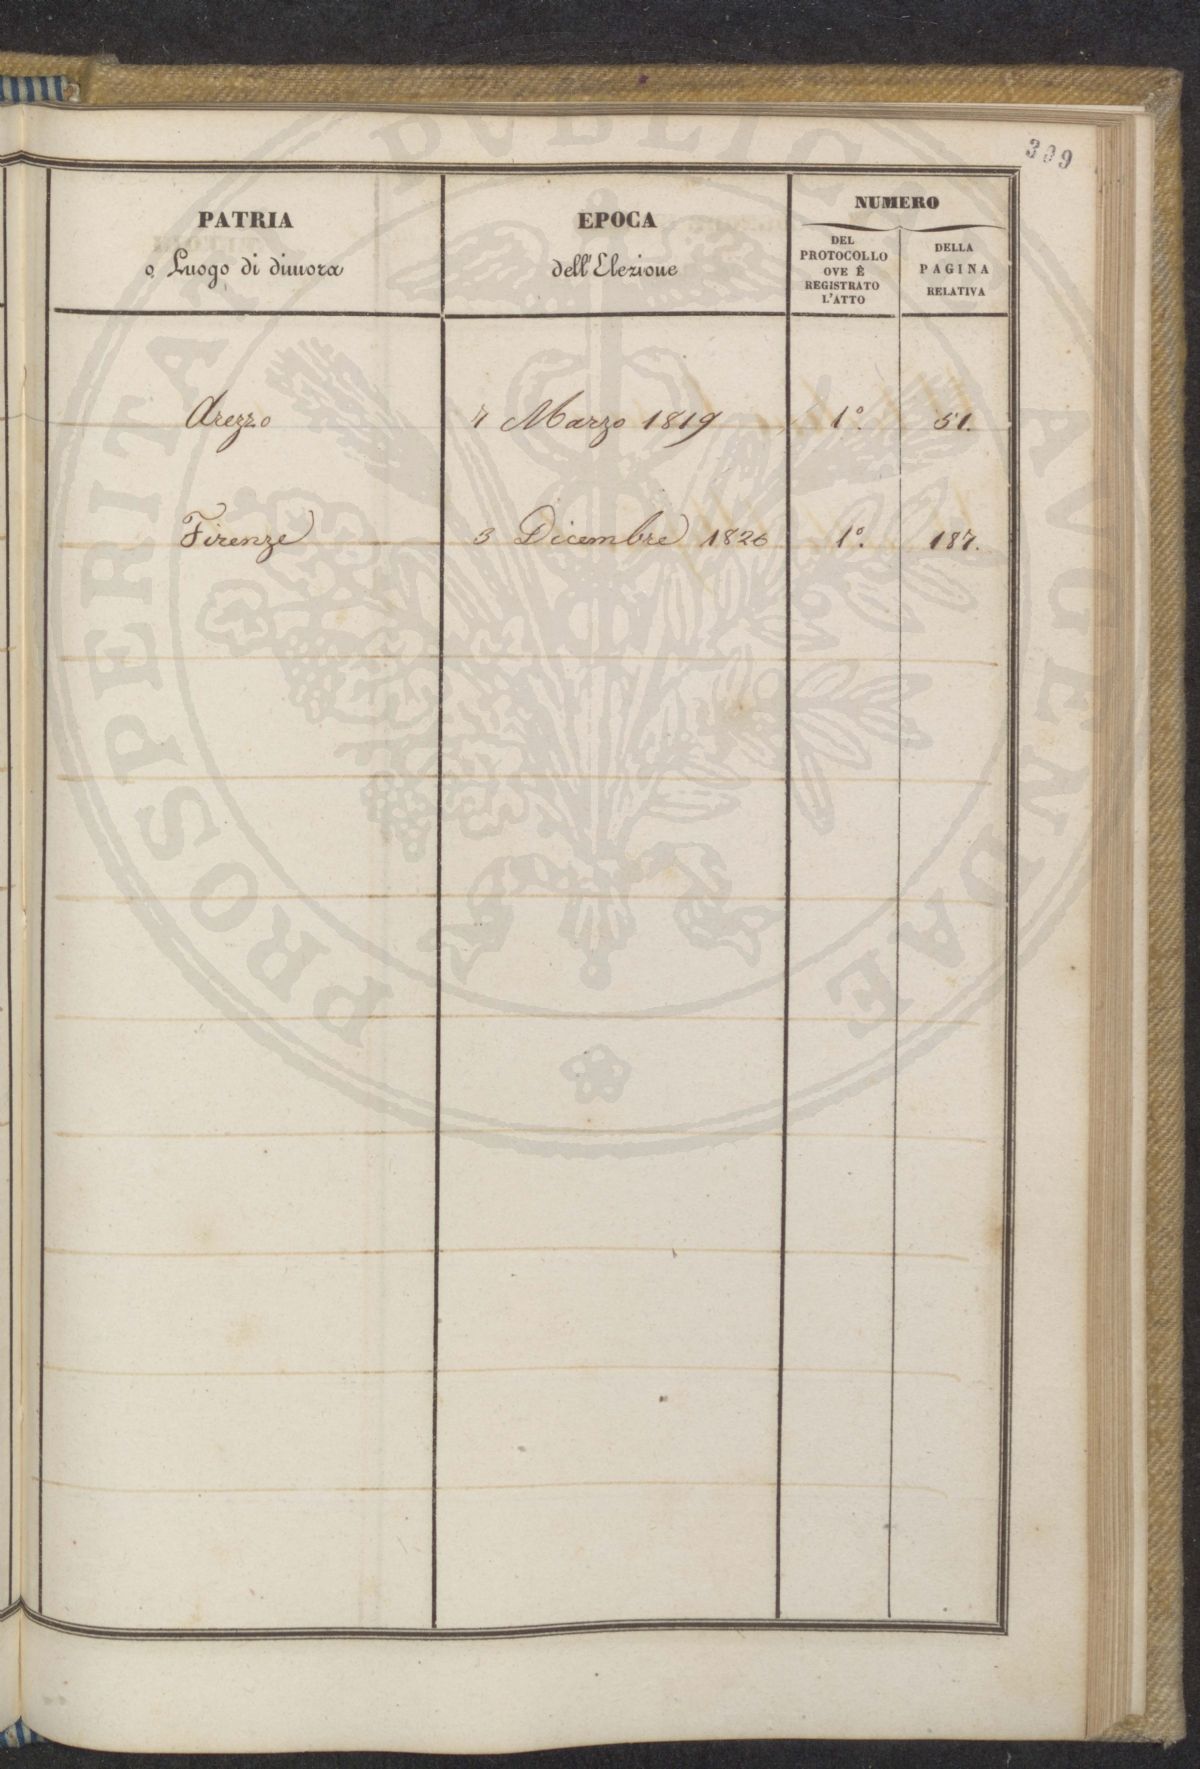 309
PATRIA
o Luogo di dimora
EPOCA
dell'Elezione
NUMERO
DEL
PROTOCOLLO
OVE È
REGISTRATO
L'ATTO
DELLA
PAGINA
RELATIVA
Arezzo 7 Marzo 1819 1º. 51.
Firenze 3 Dicembre 1826 1º. 187.
PROSPERITATI PVBLICAE AVGENDAE